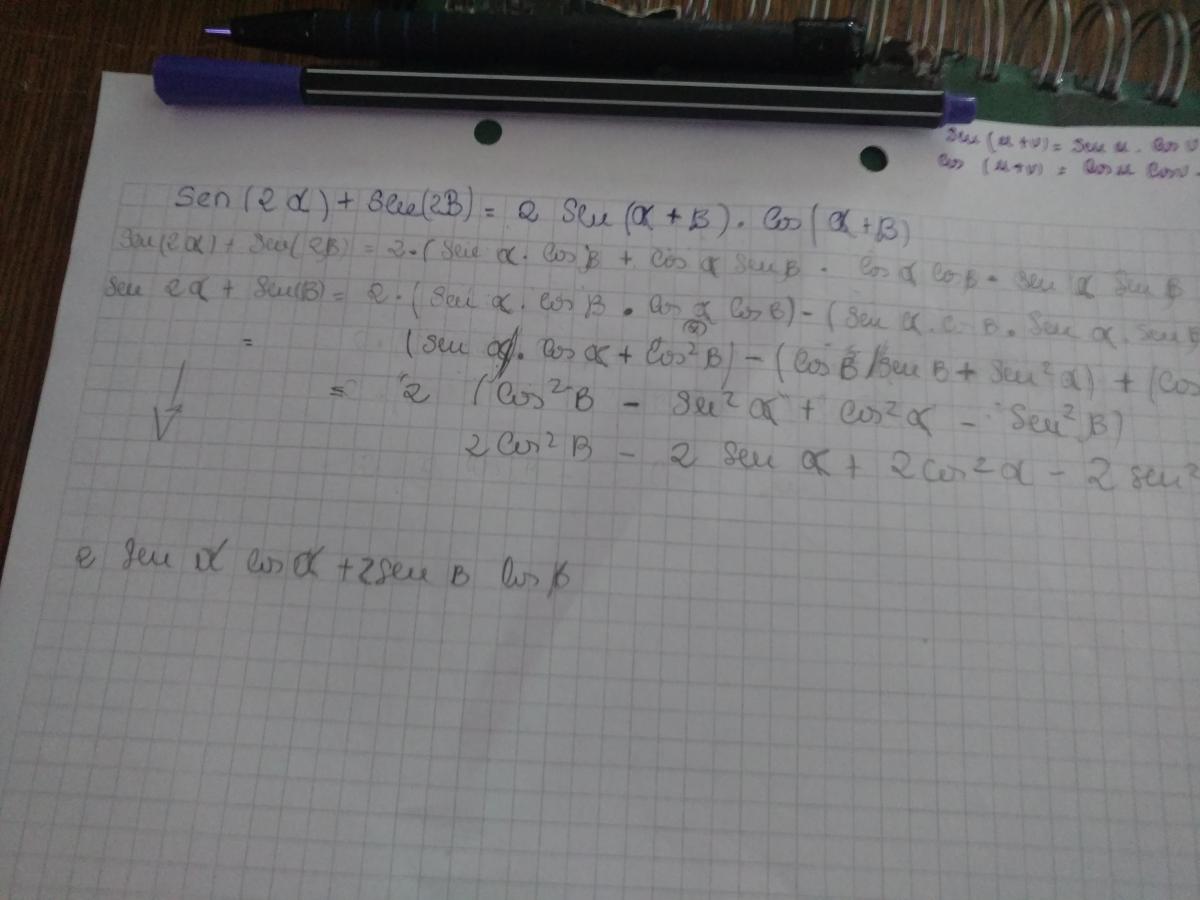 Sen (u+v) = Sen u . Cos v
Cos (u+v) = Cos u Cos v -
Sen (2α) + Sen(2B) = 2 Sen (α + B) . Cos (α + B)
Sen(2α) + Sen(2B) = 2.(Sen α . Cos B + Cos α Sen B . Cos α Cos B - Sen α Sen B
Sen 2α + Sen(B) = 2.(Sen α . Cos B . Cos α Cos B) - (Sen α . Cos B . Sen α . Sen B
= (Sen α . Cos α + Cos² B) - (Cos B Sen B + Sen² α) + (Cos
= 2 (Cos² B - Sen² α + Cos² α - Sen² B)
2 Cos² B - 2 Sen α + 2 Cos² α - 2 Sen²
2 Sen α Cos α + 2 Sen B Cos B